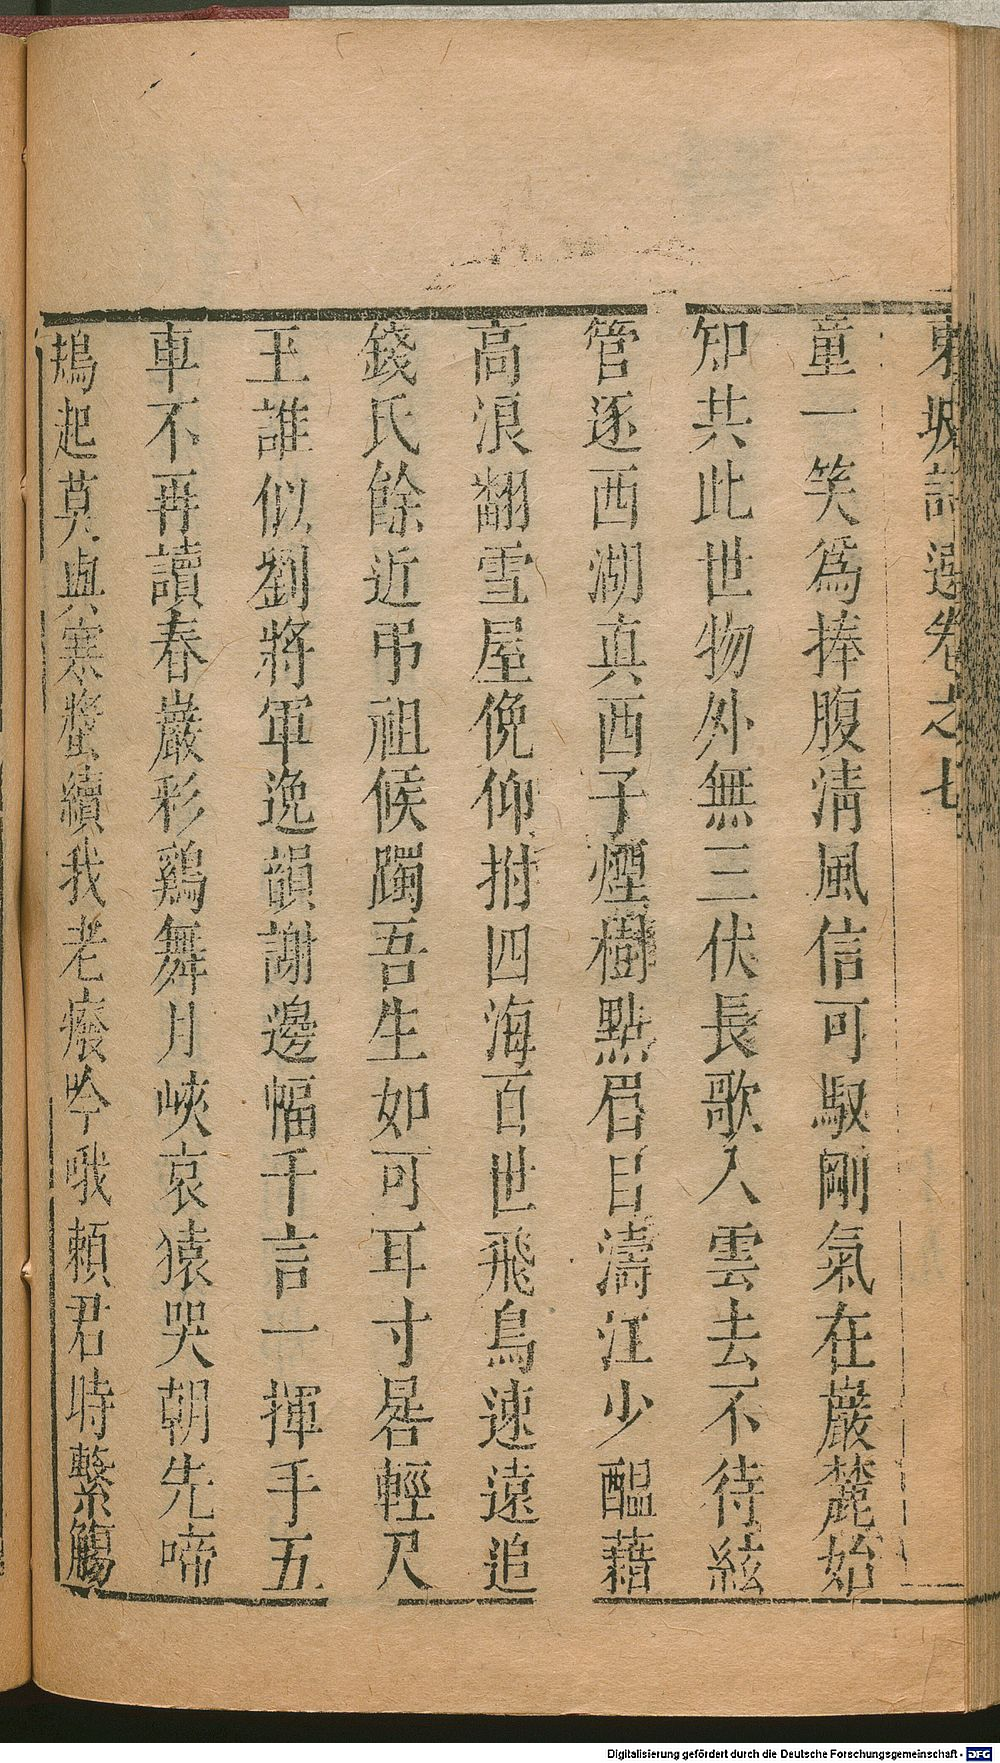 東坡詩選卷之七
童一笑爲捧腹淸風信可馭剛氣在巖麓始
知共此世物外無三伏長歌入雲去不待絃
管逐西湖真西子煙樹點眉目濤江少醞藉
高浪翻雪屋俛仰拊四海百世飛鳥速遠追
錢氏餘近弔祖候躅吾生如可耳寸晷輕尺
玉誰似劉將軍逸韻謝邊幅千言一揮手五
車不再讀春巖彩鷄舞月峽哀猿哭朝先啼
鴂起莫與寒螿續我老癈吟哦頼君時繫觸
Digitalisierung gefördert durch die Deutsche Forschungsgemeinschaft - DFG